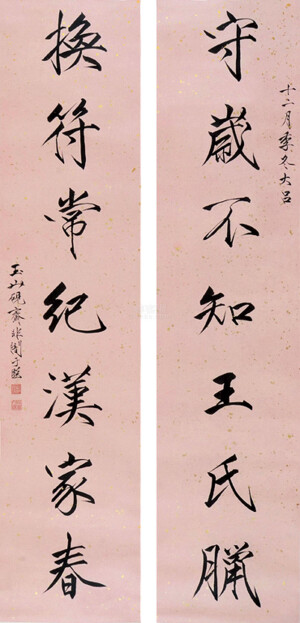 十二月季冬大呂
守歲不知王氏臘
換符常紀漢家春
玉山硯齋非闇于照